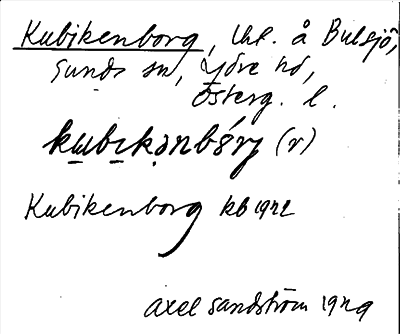 Kubikenborg, lht. å Bulsjö,
Sunds sn, Ydre hd,
Österg. l.
kubikənbórj (r)
Kubikenborg kb 1942
Axel Sandström 1929